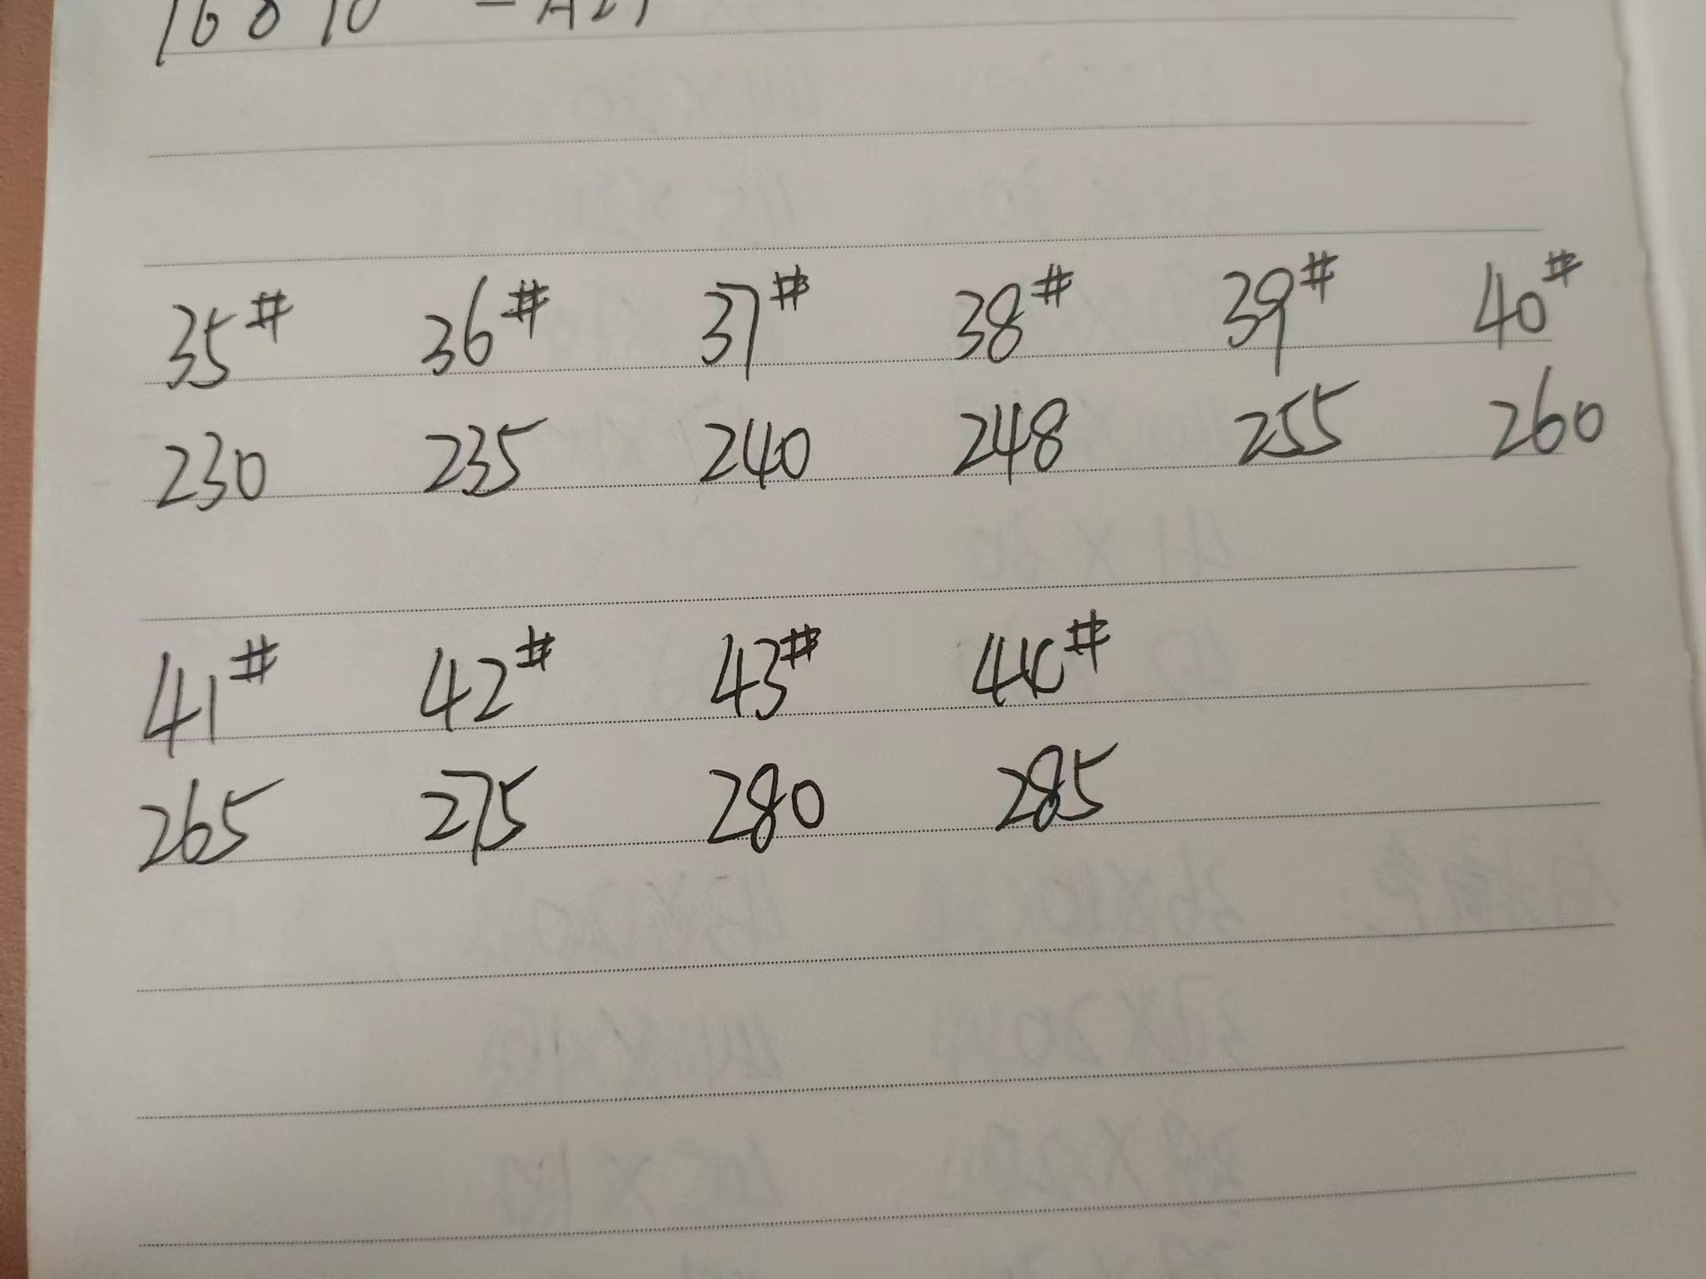 35# 36# 37# 38# 39# 40#
230 235 240 248 255 260
41# 42# 43# 44#
265 275 280 285